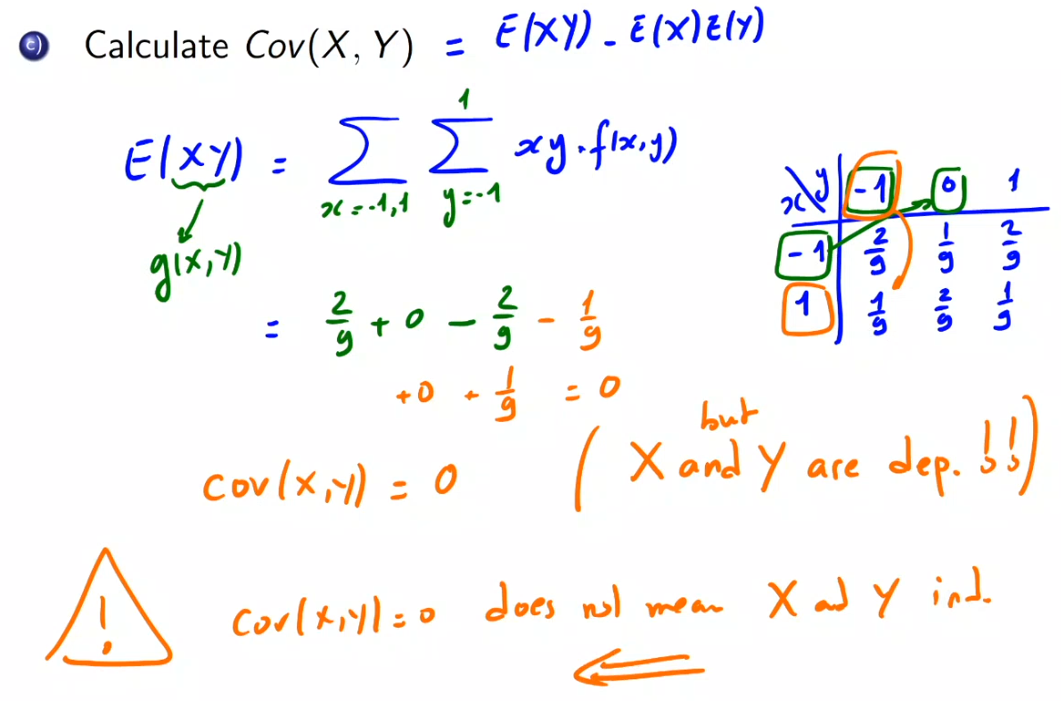 c) Calculate Cov(X, Y) = E(XY) - E(X)E(Y)
E(XY) = ∑_{x=-1,1} ∑_{y=-1}^{1} xy · f(x,y)
g(x,y)
x\y -1 0 1
-1 2/9 1/9 2/9
1 1/9 2/9 1/9
= 2/9 + 0 - 2/9 - 1/9
+0 + 1/9 = 0
cov(x,y) = 0 ( but X and Y are dep. !!)
! cov(x,y)=0 does not mean X and Y ind.
⇐